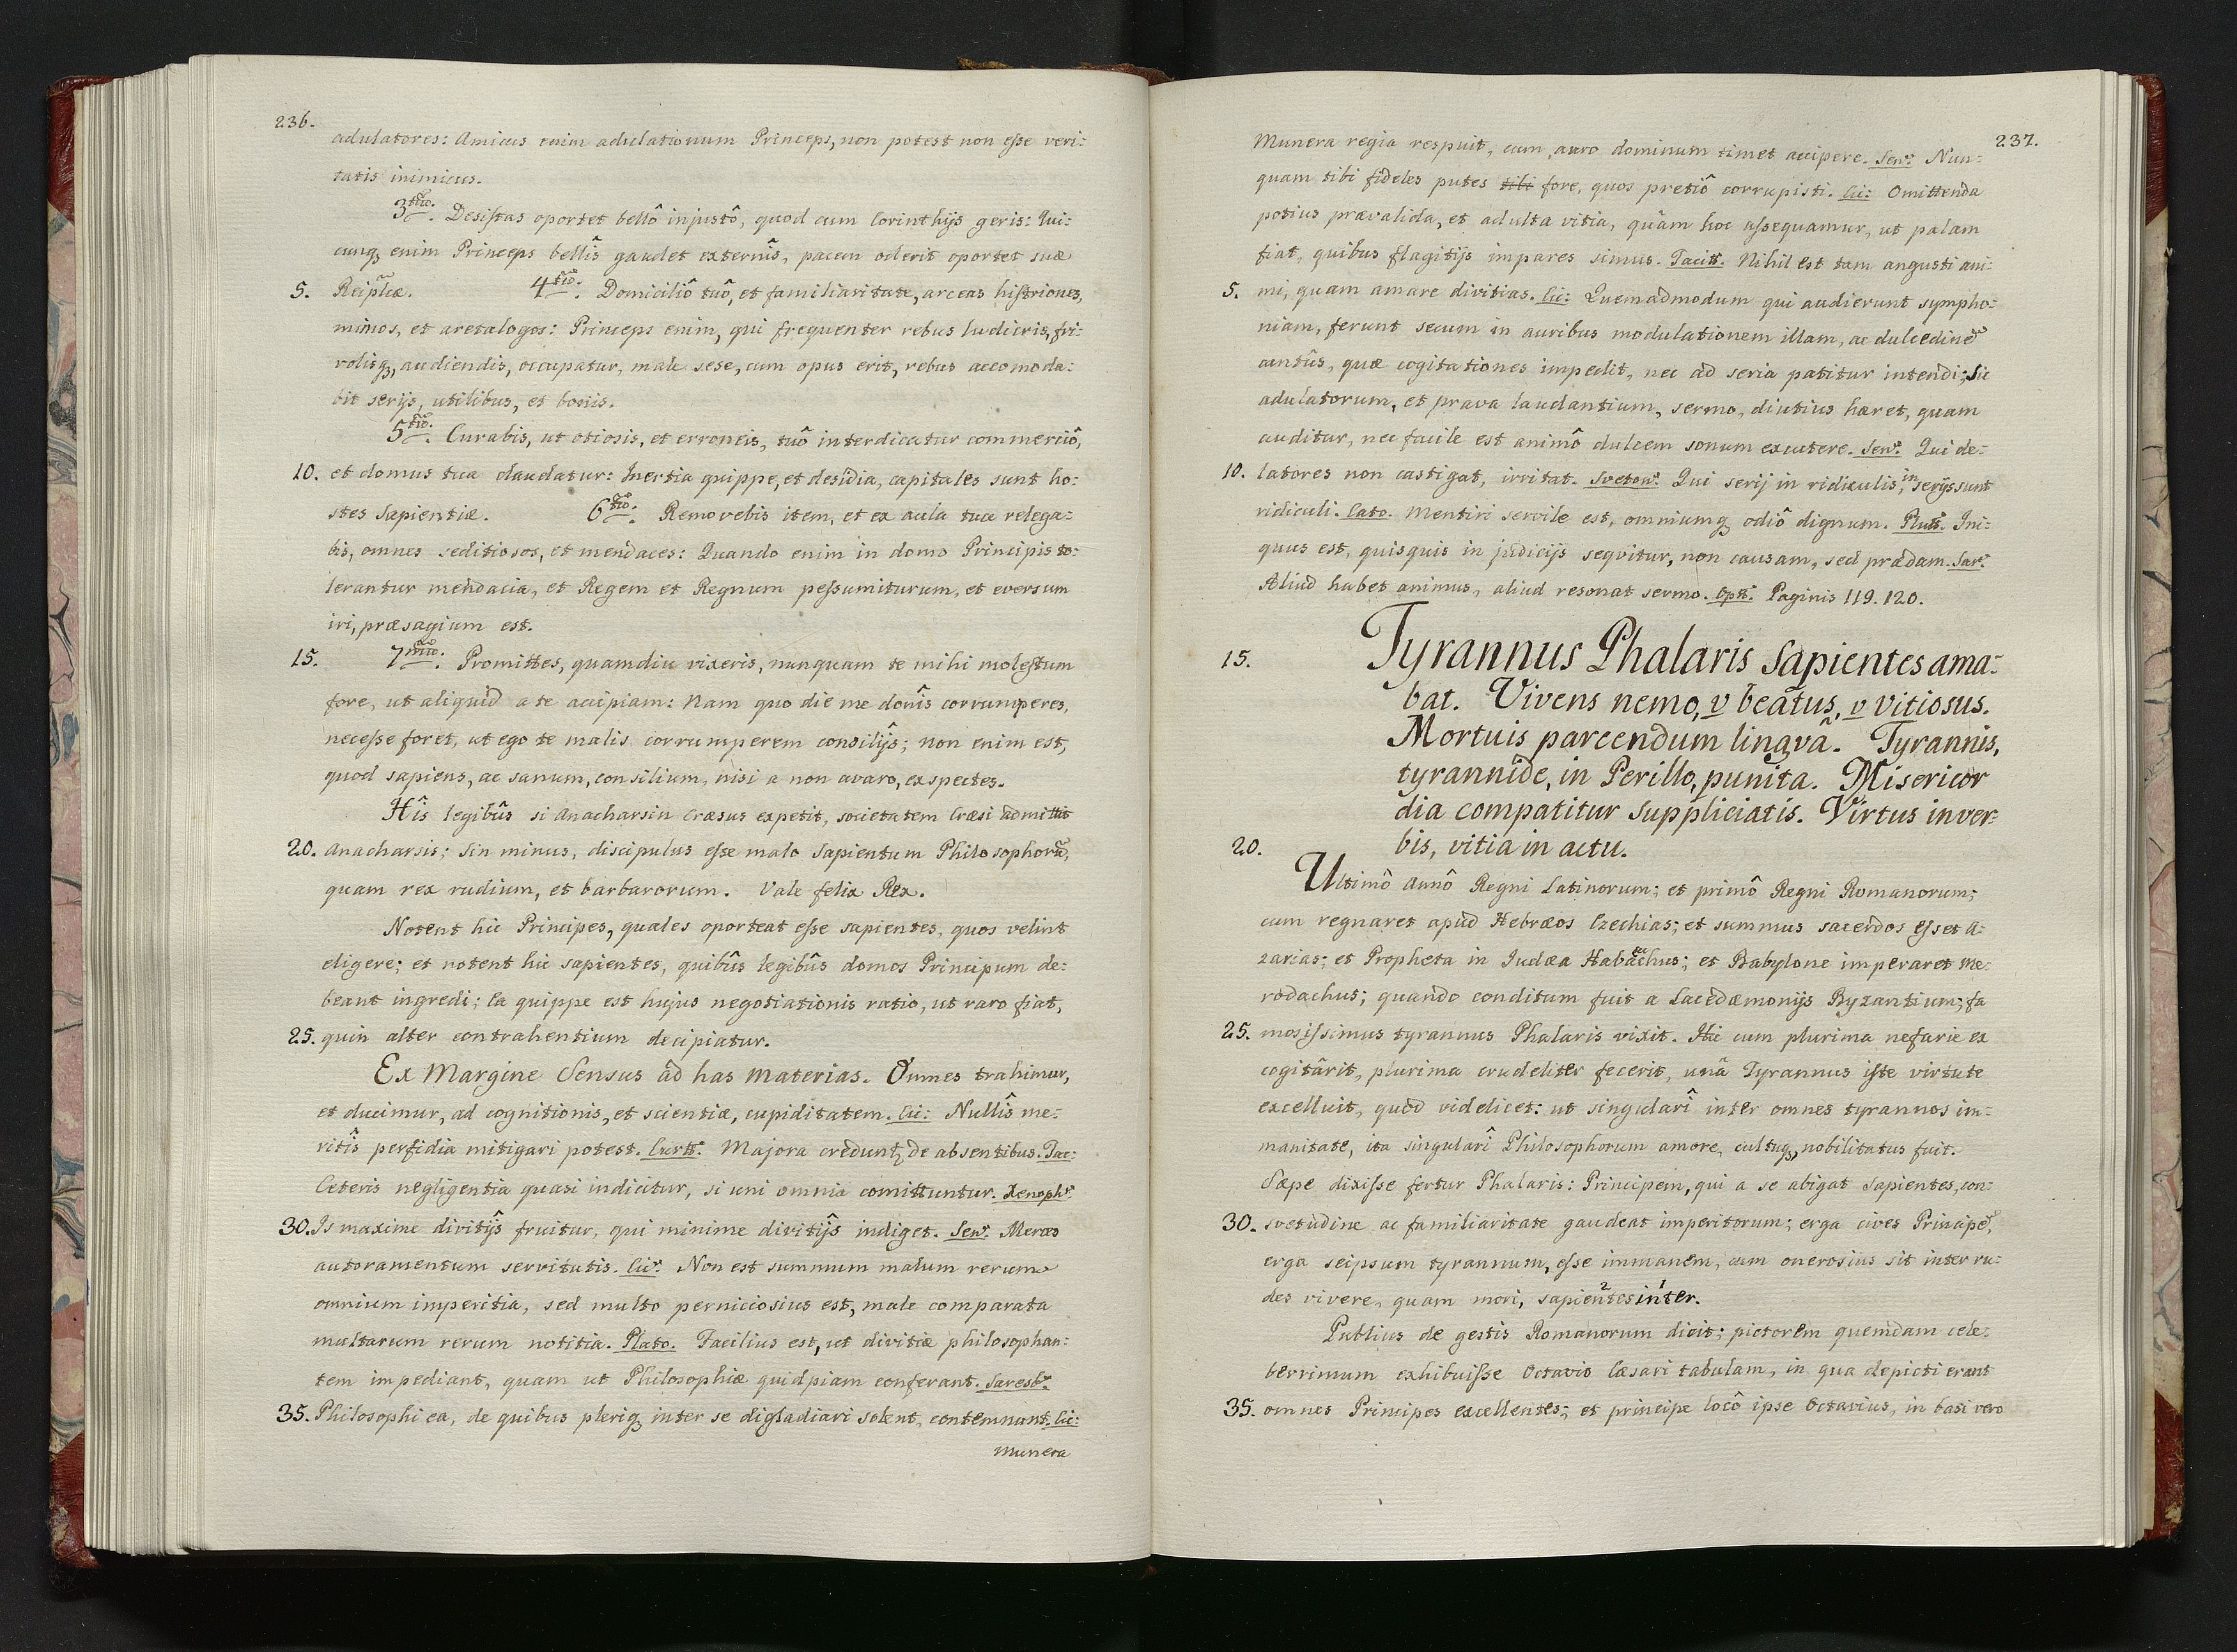 236.
adulatores: Amicus enim adulationum Princeps, non potest non eſse veri:
tatis inimicus.
3tiô. Desiſtas oportet bellô injustô, quod cum Corinthijs geris: Qui:
cunq₃ enim Princeps bellîs gaudet externîs, pacem oderit oportet suæ
5. Reiplcæ. 4tô. Domiciliô tuô, et familiaritate, arceas hiſtriones,
mimos, et aretalogos: Princeps enim, qui frequenter rebus ludicris, fri:
volisq₃, audiendis, occupatur, male sese, cum opus erit, rebus accomoda:
bit serijs, utilibus, et bonis.
5tô. Curabis, ut otiosis, et erroneis, tuô interdicatur commerciô,
10. et domus tua claudatur: Inertia quippe, et desidia, capitales sunt ho:
stes Sapientiæ. 6tô. Removebis item, et ex aula tua relega:
bis, omnes seditiosos, et mendaces: Quando enim in domo Principis to:
lerantur mendacia, et Regem et Regnum peſsumiturum, et eversum
iri, præsagium est.
15. 7mô. Promittes, quamdiu vixeris, nunquam te mihi moleſtum
fore, ut aliquid a te accipiam: Nam quo die me donîs corrumperes,
neceſse foret, ut ego te malis corrumperem consilijs; non enim est,
quod sapiens, ac sanum, consilium, nisi a non avaro, exspectes.
Hîs legibûs si Anacharsin Cræsus expetit, societatem Cræsi admittit
20. Anacharsis; Sin minus, discipulus eſse malo Sapientum Philosophorũ,
quam rex rudium, et barbarorum. Vale felix Rex.
Notent hic Principes, quales oporteat eſse sapientes, quos velint
eligere; et notent hic sapientes, quibûs legibûs domos Principum de:
beant ingredi; Ea quippe est hujus negotiationis ratio, ut raro fiat,
25. quin alter contrahentium decipiatur.
Ex Margine Sensus âd has Materias. Omnes trahimur,
et ducimur, ad cognitionis, et scientiæ, cupiditatem. Cic: Nullîs me:
ritîs perfidia mitigari potest. Curtꝰ. Majora credunt₃ de absentibus. Tac:
Ceteris negligentia quasi indicitur, si uni omnia comittuntur. Xenophꝰ.
30. Is maxime divitijs fruitur, qui minime divitijs indiget. Senꝰ. Merces
autoramentum servitutis. Cicꝰ. Non est summum malum rerum
omnium imperitia, sed multo perniciosius est, male comparata
multarum rerum notitia. Plato. Facilius est, ut divitiæ philosophan:
tem impediant, quam ut Philosophiæ quidpiam conferant. Saresbꝰ.
35. Philosophi ea, de quibus pleriq₃ inter se digladiari solent, contemnant. Cic:
Munera
237.
Munera regia respuit, cum auro dominum timet accipere. Senꝰ. Nun:
quam tibi fideles putes tibi fore, quos pretiô corrupisti. Cic: Omittenda
potius prævalida, et adulta vitia, quàm hoc aſsequamur, ut palam
fiat, quibus flagitijs impares simus. Tacitꝰ. Nihil est tam angusti ani:
5. mi, quam amare divitias. Cic: Quemadmodum qui audierunt sympho:
niam, ferunt secum in auribus modulationem illam, ac dulcedinẽ
cantûs, quæ cogitationes impedit, nec ad seria patitur intendi; Sic
adulatorum, et prava laudantium, sermo, diutius hæret, quam
auditur, nec facile est animô dulcem sonum excutere. Senꝰ. Qui de:
10. latores non castigat, irritat. Svetonꝰ. Qui serij in ridiculis, in serijs sunt
ridiculi. Cato. Mentiri servile est, omniumq₃ odiô dignum. Plutꝰ. Ini:
quus est, quisquis in judicijs seqvitur, non causam, sed prædam. Sarꝰ.
Aliud habet animus, aliud resonat sermo. Optꝰ. Paginis 119. 120.
15. Tyrannus Phalaris Sapientes ama:
bat. Vivens nemo, v beatus, v vitiosus.
Mortuis parcendum lingvâ. Tyrannis,
tyrannide, in Perillo, punita. Misericor
dia compatitur Suppliciatis. Virtus in ver:
20. bis, vitia in actu.
Ultimô Annô Regni Latinorum; et primô Regni Romanorum;
cum regnaret apud Hebræos Ezechias; et summus sacerdos eſset A:
zarias; et Propheta in Iudæa Habachus; et Babylone imperaret Me:
rodachus; quando conditum fuit a Lacedæmonijs Byzantium; fa
25. mosiſsimus tyrannus Phalaris vixit. Hic cum plurima nefarie ex
cogitârit, plurima crudeliter fecerit, unâ Tyrannus iſte virtute
excelluit, quod videlicet: ut singularî inter omnes tyrannos im:
manitate, ita singularî Philosophorum amore, cultuq₃, nobilitatus fuit.
Sæpe dixiſse fertur Phalaris: Principem, qui a se abigat Sapientes, con:
30. svetudine ac familiaritate gaudeat imperitorum; erga cives Principẽ,
erga seipsum tyrannum, eſse immanem, cum onerosius sit inter ru:
des vivere, quam mori, sapientes² inter¹.
Publius de gestis Romanorum dicit; pictorem quemdam cele:
berrimum exhibuiſse Octavio Cæsari tabulam, in qua depicti erant
35. omnes Principes excellentes; et principe locô ipse Octavius, in basi vero